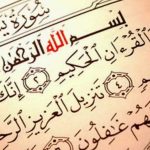 سورة يس
بسم الله الرحمن
والقرءان الحكيم
تنزيل العزيز الرحيم
غفلون